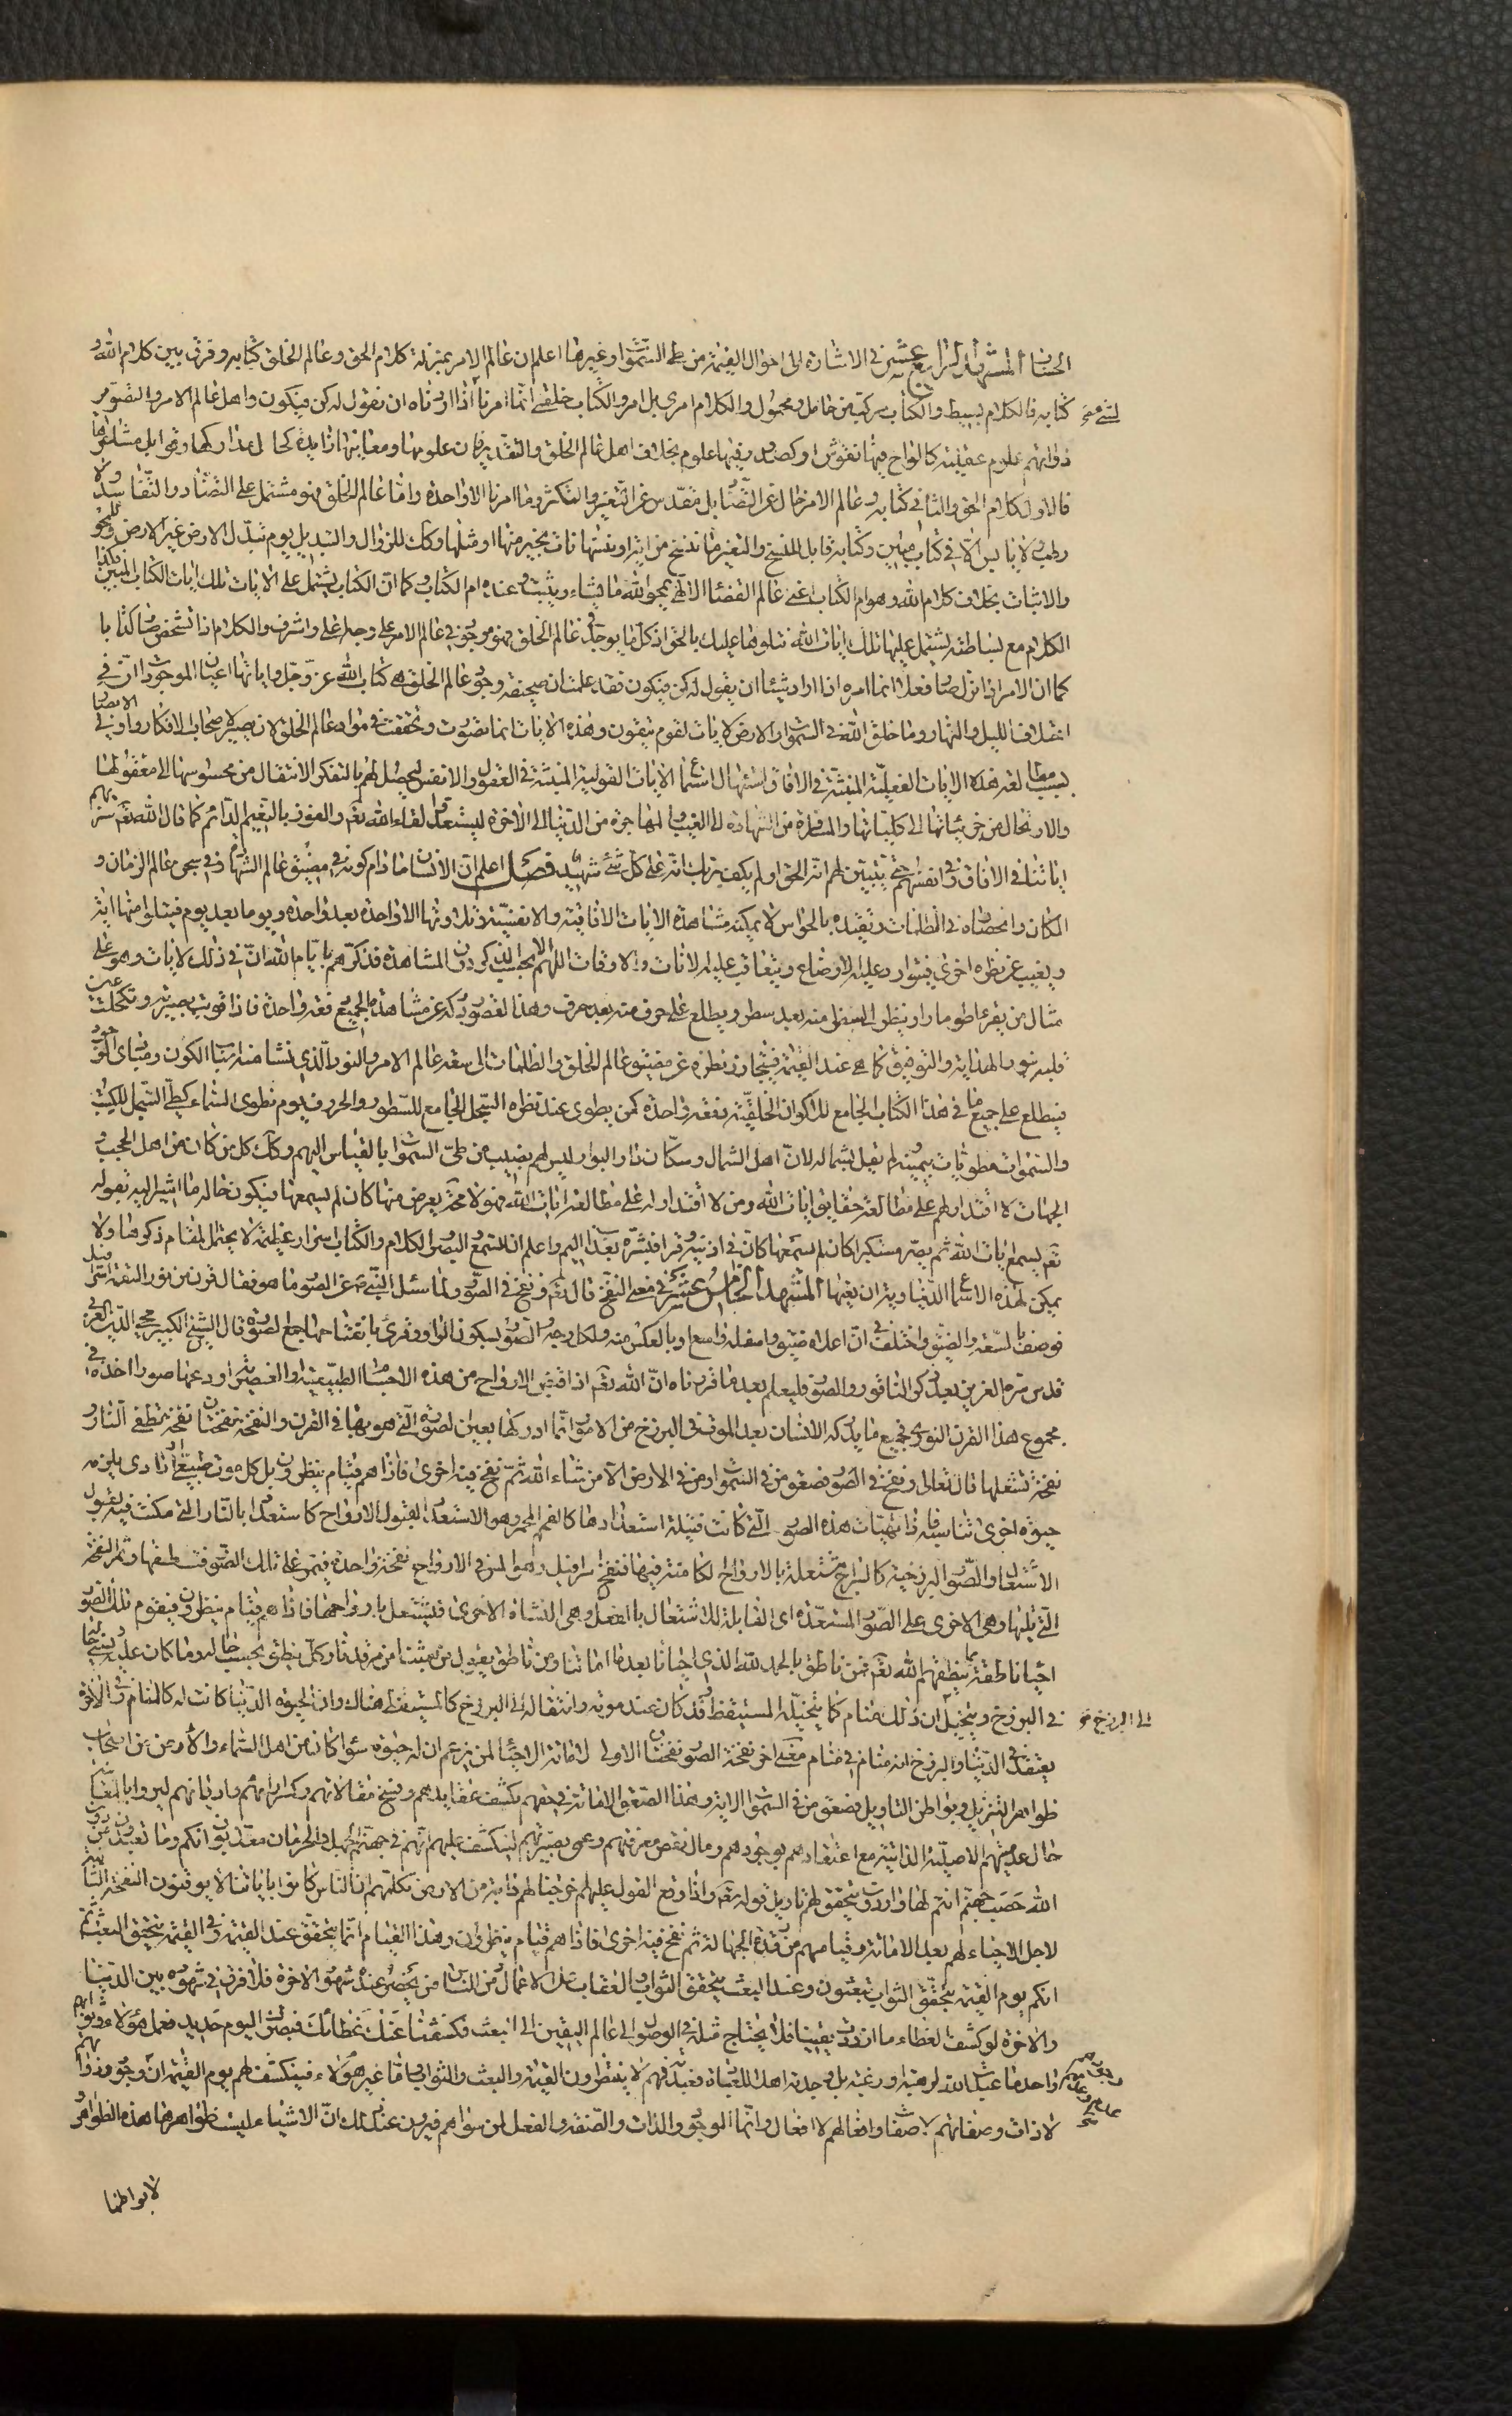 الحسنا المشهد الرابع عشر في الاشارة الى احوال القيمة من طى السموات وغيرها اعلم ان عالم الامر بمنزلة كلام الحق وعالم الخلق كتابه وفرق بين كلام الله و
كتابه فالكلام بسيط والكتاب مركب من حامل ومحمول والكلام امرى بل امر والكتاب خلقى انما امرنا اذا اردناه ان نقول له كن فيكون واهل عالم الامر والتصوير
ذواتهم علوم عقلية كالواح فيها نقوش او كصدور فيها علوم بخلاف اهل عالم الخلق والتقدير فان علومها ومعانيها زايدة
فالاول كلام الحق والثانى كتابه وعالم الامر خال عن التضاد بل مقدس عن التغير والتكثر وما امرنا الا واحدة واما عالم الخلق فهو مشتمل على التضاد والتفاسد ولا
رطب ولا يابس الا في كتاب مبين وكتابه قابل للنسخ والتغير ما ننسخ من اية او ننسها نات بخير منها او مثلها وكك للزوال والتبديل يوم تبدل الارض غير الارض وللمحو
والاثبات بخلاف كلام الله وهو ام الكتاب اعنى عالم القضاء الالهى يمحو الله ما يشاء ويثبت وعنده ام الكتاب وكما ان الكتاب يشتمل على الايات تلك ايات الكتاب المبين فكذا
الكلام مع بساطته يشتمل عليها تلك ايات الله نتلوها عليك بالحق اذ كل ما يوجد في عالم الخلق فهو موجود في عالم الامر على وجه اعلى واشرف والكلام اذا تشخص صار كتابا
كما ان الامر اذا نزل صار فعلا انما امره اذا اراد شيئا ان يقول له كن فيكون فقد علمت ان صحيفة وجود عالم الخلق هى كتاب الله عز وجل واياتها اعيان الموجودات ان في
اختلاف الليل والنهار وما خلق الله في السموات والارض لايات لقوم يتقون وهذه الايات انما تصورت وتحققت في مواد عالم الخلق لان يصير لاصحاب الافكار واولى الابصار
بسبب مطالعة هذه الايات الفعلية المنبثة في الافاق استيهال استماع الايات القولية المثبتة في العقول والانفس ليحصل لهم بالتفكر الانتقال من محسوسها الى معقولها
والارتحال من جزئياتها الى كلياتها والمسافرة من الشهادة الى الغيب والمهاجرة من الدنيا الى الاخرة ليستعدوا لقاء الله تعم والفوز بالنعيم الدائم كما قال الله تعم سنريهم
اياتنا في الافاق وفي انفسهم حتى يتبين لهم انه الحق اولم يكف بربك انه على كل شئ شهيد فصل اعلم ان الانسان ما دام كونه في مضيق عالم الشهادة وفي سجن عالم الزمان و
المكان وانحصاره في الظلمات وتقيده بالحواس لا يمكنه مشاهدة الايات الافاقية والانفسية وتلاوتها الا واحدة بعد واحدة ويوما بعد يوم فيتلو منها اية
ويغيب عن نظره اخرى فيتوارد عليه الاوضاع ويتعاقب عليه الانات والاوقات اللهم الا بحسب التذكر دون المشاهدة فذكرهم بايام الله ان في ذلك لايات وهو على
مثال من يقرء طومارا وينظر الى سطر منه بعد سطر ويطلع على حرف منه بعد حرف وهذا لقصور مدركه عن مشاهدة الجميع دفعة واحدة فاذا قويت بصيرته وتكحلت عين
قلبه بنور الهداية والتوفيق كما هى عند القيمة فيتجاوز نظره عن مضيق الخلق والظلمات الى سعة عالم الامر والنور الذى نشا منه
فيطلع على جميع ما في هذا الكتاب الجامع للاكوان الخلقية دفعة واحدة كمن يطوى عند نظره السجل الجامع للسطور والحروف يوم نطوى السماء كطى السجل للكتب
والسموات مطويات بيمينه لم يقل بشماله لان اهل الشمال وسكان دار البوار ليس لهم نصيب من طى السموات بالقياس اليهم وكك كل من كان من اهل الحجب و
الجهات لا اقتدار لهم على مطالعة حقايق ايات الله ومن لا اقتدار له على مطالعة ايات الله فهو لا محة يعرض منها كان لم يسمعها فيكون حاله ما اشير اليه بقوله
تعم يسمع ايات الله ثم يصر مستكبرا كان لم يسمعها كان في اذنيه وقرا فبشره بعذاب اليم واعلم ان للسمع والبصر والكلام والكتاب اسرارا عظيمة لا يحتمل المقام ذكرها ولا
يمكن لهذه الاسماع الدنياوية ان يعيها المشهد الخامس عشر في معنى النفخ قال تعم ونفخ في الصور ولما سئل النبي ص عن الصور ما هو فقال قرن من نور التقمه اسرافيل
فوصف بالسعة والضيق واختلف في ان اعلاه ضيق واسفله واسع او بالعكس منه ولكل وجه والصور بسكون الواو وقرئ بانفتاحها جمع الصورة قال الشيخ الكبير محيى الدين العربى
قدس سره العزيز بعد ذكر الناقور والصور فليعلم بعد ما قررناه ان الله تعم اذا اقبض الارواح من هذه الاجسام الطبيعية والعنصرية اودعها صورا اخذت في
مجموع هذا القرن النورى فجميع ما يدركه الانسان بعد الموت في البرزخ من الامور انما ادركها بعين الصورة التى هو بها في القرن والنفخة نفختان نفخة تطفى النار و
نفخة تشعلها قال تعالى ونفخ في الصور فصعق من في السموات ومن في الارض الا من شاء الله ثم نفخ فيه اخرى فاذا هم قيام ينظرون بل كل موت طبيعى او ارادى يلزمه
حيوة اخرى تناسبه فاذا تهيات هذه الصور التى كانت فتيلة استعدادها كالفحم المجمر وهو الاستعداد لقبول الارواح كاستعداد بالنار التى مكنت فيه لقبول
الاشتعال والصور البرزخية كالسرج مشتعلة بالارواح الكامنة فيها فنفخ اسرافيل وهو المنزى الارواح نفخة واحدة فيمر على تلك الصور فتطفيها وتمر النفخة
التى تليها وهى الاخرى على الصور المستعدة اى القابلة للاشتعال بالفعل وهى النشاة الاخرى فيشتعل بارواحها فاذا هم قيام ينظرون فيقوم تلك الصور
احياء ناطقة بما ينطقهم الله تعم فمن ناطق بالحمد لله الذى احيانا بعد ما اماتنا ومن ناطق يقول من بعثنا من مرقدنا وكل ينطق بحسب حاله وما كان عليه
في البرزخ ويتخيل ان ذلك منام كما يتخيله المستيقظ وقد كان عند موته وانتقاله الى البرزخ كالمستيقظ هناك وان الحيوة الدنيا كانت له كالمنام في الاخرة
يعتقد في الدنيا والبرزخ انه منام في منام معنى اخر نفخة الصور نفختان الاولى لاماتة الاحياء لمن يزعم ان له حيوة سواء كان من اهل السماء والارض من اصحاب
ظواهر التنزيل وبواطن التاويل فصعق من في السموات الاية وهذا الصعق الاماتة في حقهم بكشف عقايدهم ونسخ مقالاتهم وكسر اسامئهم وادنانهم ليروا
حال عدميتهم الاصلية الذاتية مع اعتقادهم بوجودهم ومال نقص معرفتهم وعمى بصيرتهم لينكشف عليهم انهم في جهنم الجهل والحرمان معذبون انكم وما تعبدون من دون
الله حصب جهنم انتم لها واردون ويتحقق لهم تاويل قوله تعم واذا وقع القول عليهم اخرجنا لهم دابة من الارض تكلمهم ان الناس كانوا باياتنا لا يوقنون النفخة الثانية
لاجل الاحياء لهم بعد الاماتة وقيامهم من رقدة الجهالة ثم نفخ فيه اخرى فاذا هم قيام ينظرون وهذا القيام انما يتحقق عند القيمة وفي القيمة يتحقق البعث ثم
انكم يوم القيمة تبعثون وعند البعث يتحقق الثواب والعقاب على الاعمال من الناس من يحضر عنده شهود الاخرة فلا فرق في شهوده بين الدنيا
والاخرة لو كشف الغطاء ما ازددت يقينا فلا يحتاج مثله في الوصول الى عالم اليقين الى البعث فكشفنا عنك غطائك فبصرك اليوم حديد فعمل هؤلاء وثوابهم
واحد ما عبدتك لرهبة ولا رغبة بل وجدتك اهلا للعبادة فعبدتك فهم لا ينتظرون القيمة والبعث والثواب واما غير هؤلاء فينكشف لهم يوم القيمة ان وجود ذواتهم
لا ذات وصفاتهم لا صفات وافعالهم لا افعال وانما الوجود والذات والصفة والفعل لمن سواهم فيرون عند ذلك ان الاشياء ليست ظواهرها هذه الظواهر و
لا بواطنها
الى البرزخ خ